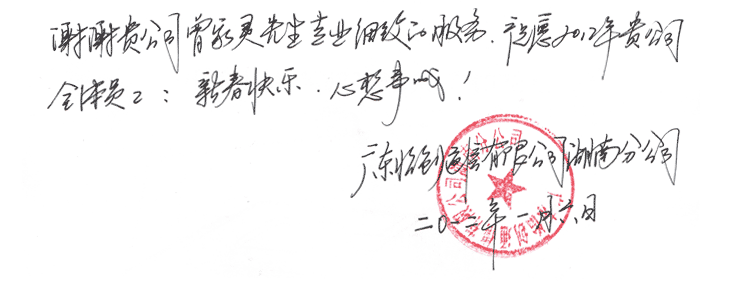 谢谢贵公司曾家灵先生专业细致的服务.祝愿2012年贵公司
全体员工：新春快乐.心想事成！
广东怡创通信有限公司湖南分公司
二〇一二年一月六日